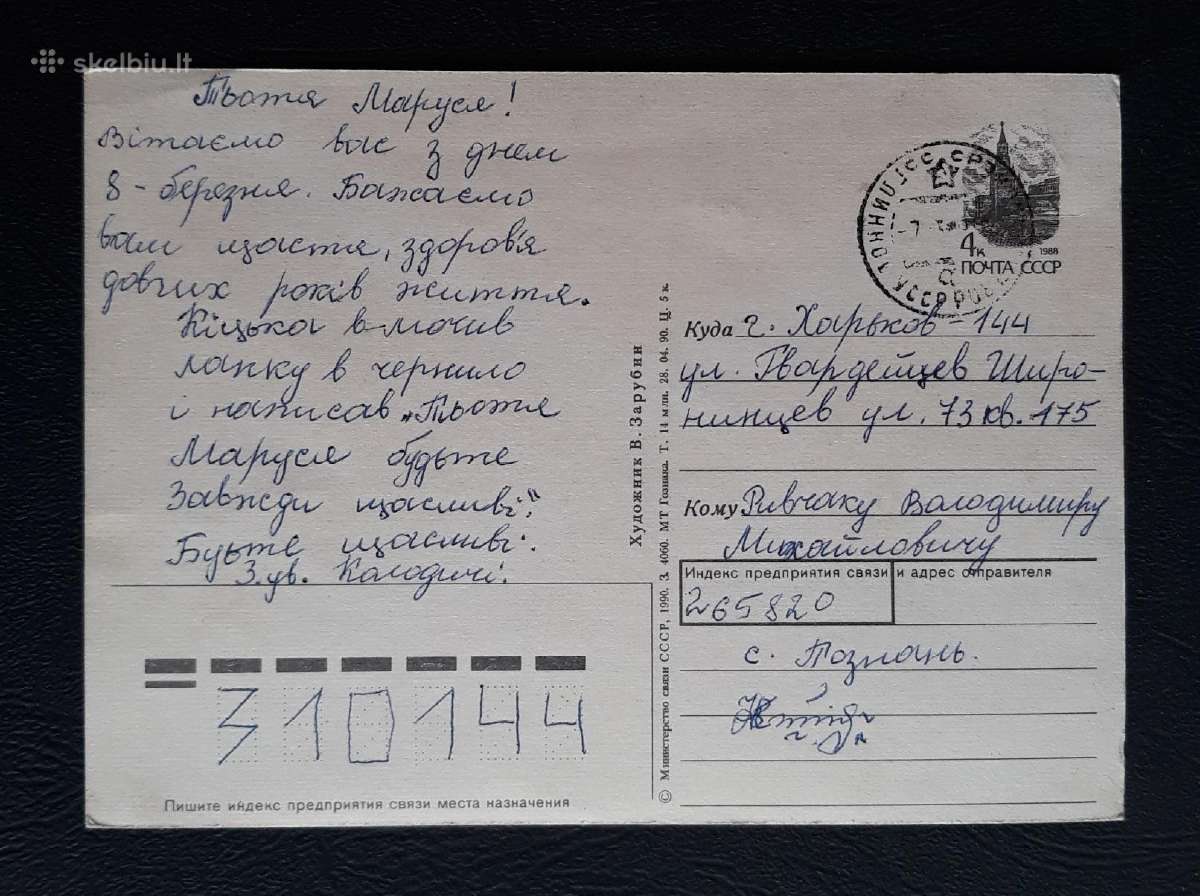 skelbiu.lt
Тьотя Маруся!
Вітаємо вас з днем
8-березня. Бажаємо
вам щастя, здоров'я
довгих років життя.
Кіцька в-мочив
лапку в чернило
і написав „Тьотя
Маруся будьте
Завжди щасливі!"
Будьте щасливі.
З.ув. Колодичі.
4к 1988
ПОЧТА СССР
Куда г. Харьков-144
ул. Гвардейцев Широ-
нинцев ул. 73 кв. 175
Кому Ривчаку Володимиру
Михайловичу
Индекс предприятия связи и адрес отправителя
265820
с. Познань.
310144
Пишите индекс предприятия связи места назначения
Художник В. Зарубин
© Министерство связи СССР, 1990. З. 4060. МТ Гознака. Т. 14 млн. 28. 04. 90. Ц. 5 к.